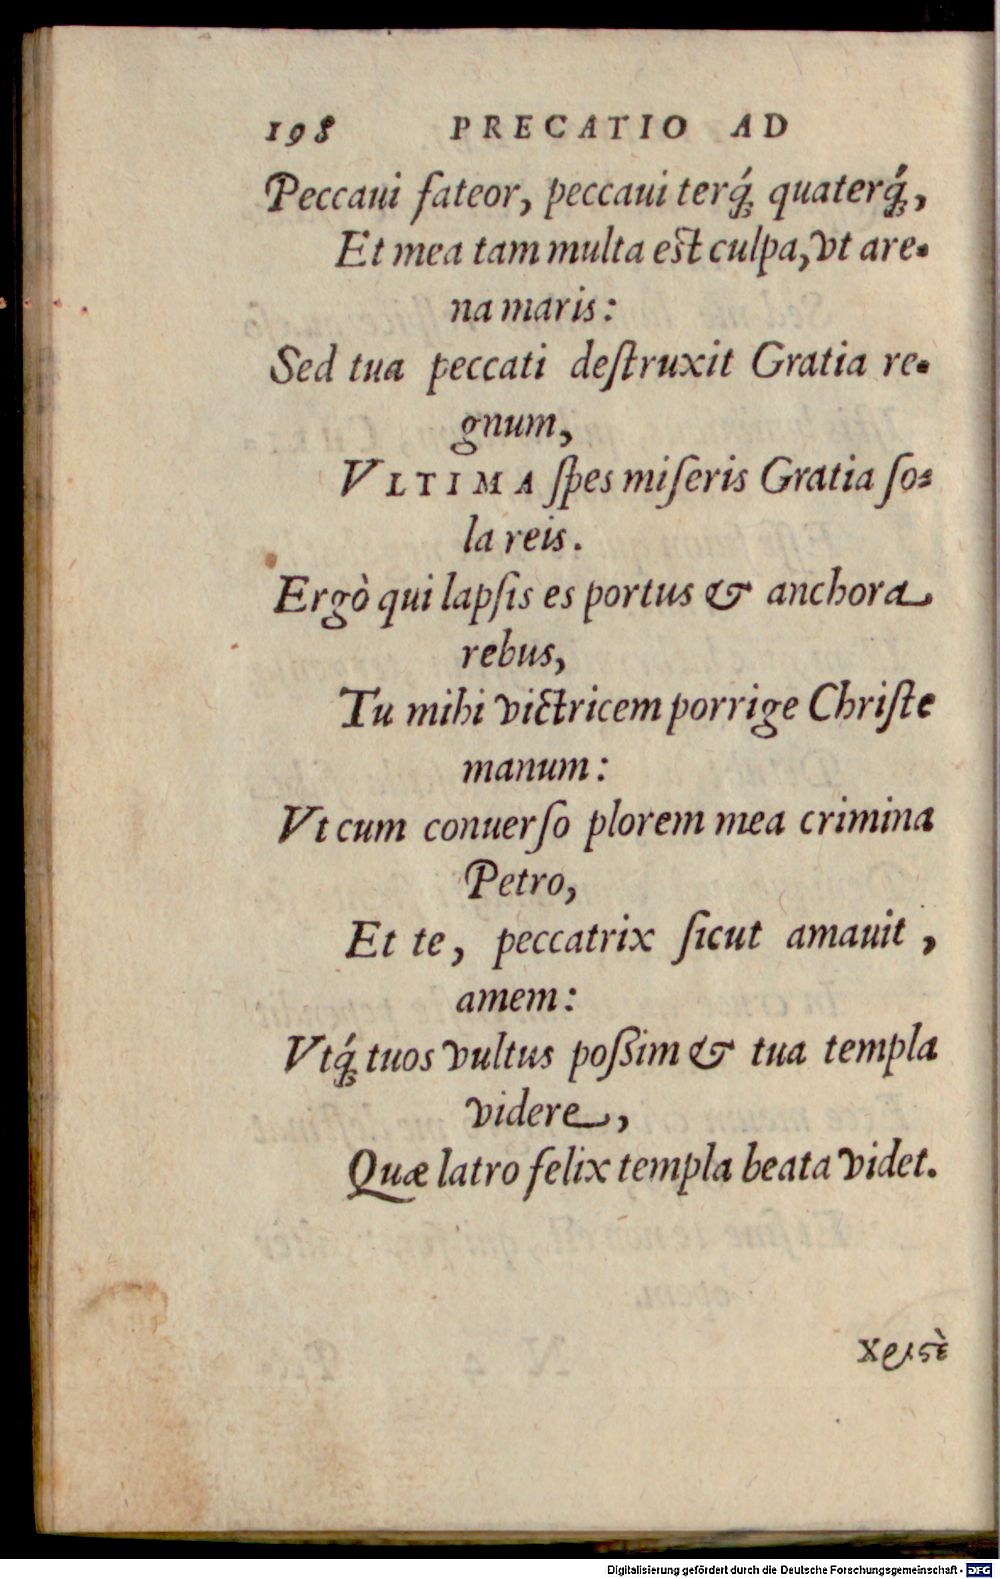 198 PRECATIO AD
Peccaui fateor, peccaui terq́; quaterq́;,
Et mea tam multa est culpa, vt are-
na maris:
Sed tua peccati deſtruxit Gratia re-
gnum,
VLTIMA ſpes miſeris Gratia ſo-
la reis.
Ergò qui lapſis es portus & anchora
rebus,
Tu mihi victricem porrige Chriſte
manum:
Vt cum conuerſo plorem mea crimina
Petro,
Et te, peccatrix ſicut amauit,
amem:
Vtq́; tuos vultus poßim & tua templa
videre,
Quæ latro felix templa beata videt.
Χριϛὲ
Digitalisierung gefördert durch die Deutsche Forschungsgemeinschaft - DFG